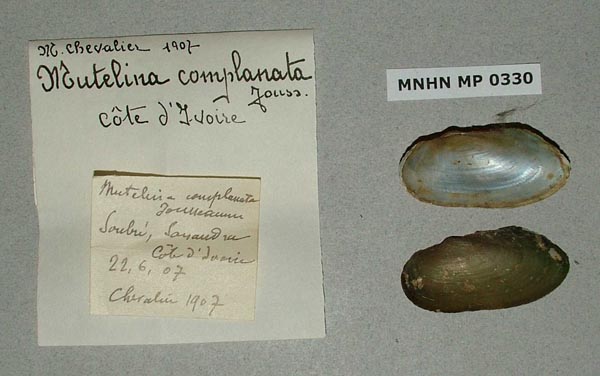 M. Chevalier 1907
Mutelina complanata
Jouss.
côte d'Ivoire
Mutelina complanata
Jousseaume
Soubré, Sassandra
Côte d'Ivoire
22, 6, 07
Chevalier 1907
MNHN MP 0330